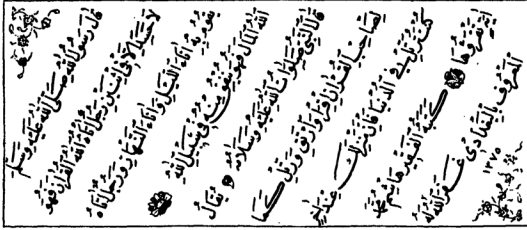 قال رسول الله صلى الله عليه وسلم
لا حسد إلا في اثنتين رجل آتاه الله القرآن فهو
يقوم به آناء الليل وآناء النهار ورجل آتاه
الله المال فهو ينفقه في سبيل الله
قال النبي صلوات الله عليه وسلامه يقال
لصاحب القرآن اقرأ وارق ورتل كما
كنت ترتل في الدنيا فإن منزلك عند آخر
آية تقرؤها كتبه الفقير هاشم محمد
المعروف البغدادي غفر الله له ١٣٧٥